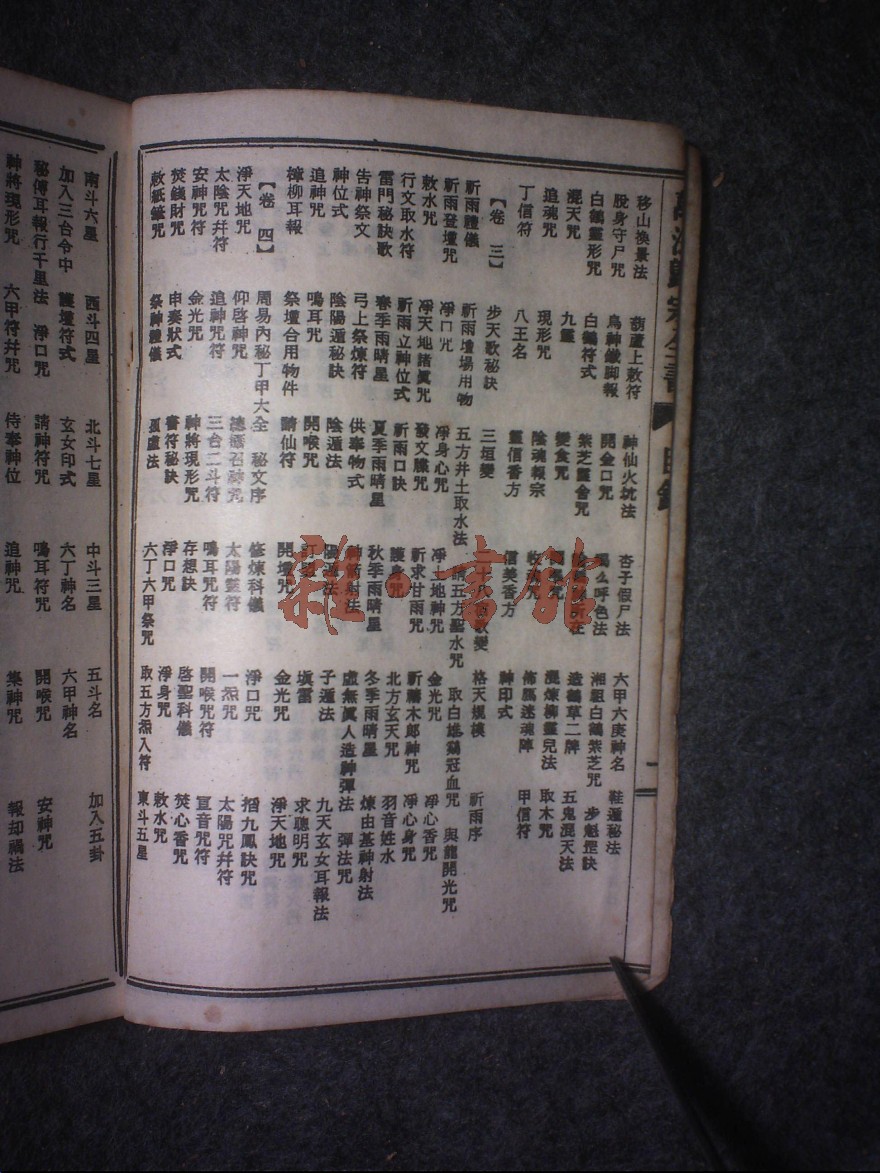 移山換景法 葫蘆上敕符 神仙火坑法 杏子假尸法 六甲六庚神名 鞋遁秘法
股身守尸咒 烏神鐵脚報 開金口咒 呼色法 湘祖白鶴紫芝咒 步魁罡訣
白鶴靈形咒 白鶴符式 紫芝靈舍咒 所在 造鶴草二牌 五鬼混天法
混天咒 九靈 變食咒 混煉柳靈兒法 取木咒
追魂咒 現形咒 陰魂報宗 收魂咒 佈馬迷魂陣 甲信符
丁信符 八王名 靈信香方 信美香方 神印式
【卷 三】 步天歌秘訣 三垣變 十八宿歌變 格天規模 祈雨序
祈雨禮儀 祈雨壇場用物 五方井土取水法 請五方聖水咒 取白雄鷄冠血咒 與龍開光咒
祈雨登壇咒 淨口咒 淨身心咒 淨土地神咒 金光咒 淨心香咒
敕水咒 淨天地諸眞咒 發文牒咒 祈求甘雨咒 祈禱木郎神咒 淨心身咒
行文取水符 祈雨立神位式 祈雨口訣 護身咒 北方玄天咒 羽音姓水
雷門秘訣歌 春季雨晴星 夏季雨晴星 秋季雨晴星 冬季雨晴星 煉由基神射法
告神祭文 弓上祭煉符 供奉物式 神箭射法 虛無眞人造神彈法 彈法咒
神位式 陰陽遁秘訣 陰遁法 陽遁法 子遁法 九天玄女耳報法
追神咒 鳴耳咒 開喉咒 塡雷 求聰明咒
樟柳耳報 祭壇合用物件 請仙符 開壇咒 金光咒 淨天地咒
【卷 四】 周易內秘丁甲大全 秘文序 修煉科儀 淨口咒 搯九鳳訣咒
淨天地咒 仰啓神咒 德濟召神咒 太陽靈符 一炁咒 太陽咒幷符
太陰咒幷符 追神咒符 三台二斗符 鳴耳咒符 開喉咒符 宣音咒符
安神咒符 金光咒 神將現形咒 存想訣 啓聖科儀 焚心香咒
焚錢財咒 申奏狀式 書符秘訣 淨口咒 淨身咒 敕水咒
敕紙筆咒 祭神禮儀 孤虛法 六丁六甲祭咒 取五方炁入符 東斗五星
南斗六星 西斗四星 北斗七星 中斗三星 五斗名 加入五卦
加入三台令中 護壇符式 玄女印式 六丁神名 六甲神名
秘傳耳報行千里法 淨口咒 請神符咒 鳴耳符咒 開喉咒 安神咒
神將現形咒 六甲符幷咒 侍奉神位 追神咒 集神咒 報却禍法
雜·書館